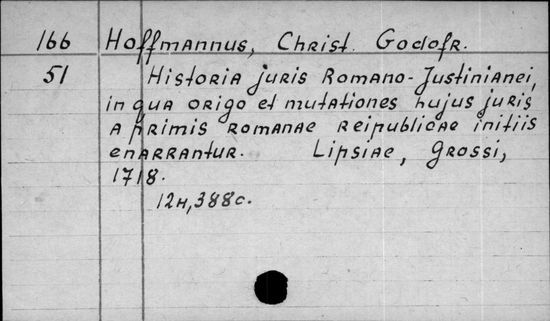 166 Hoffmannus, Christ. Godofr.
51 Historia juris Romano-Justinianei,
in qua origo et mutationes hujus juris
a primis romanae reipublicae initiis
enarrantur. Lipsiae, Grossi,
1718.
12н, 388c.